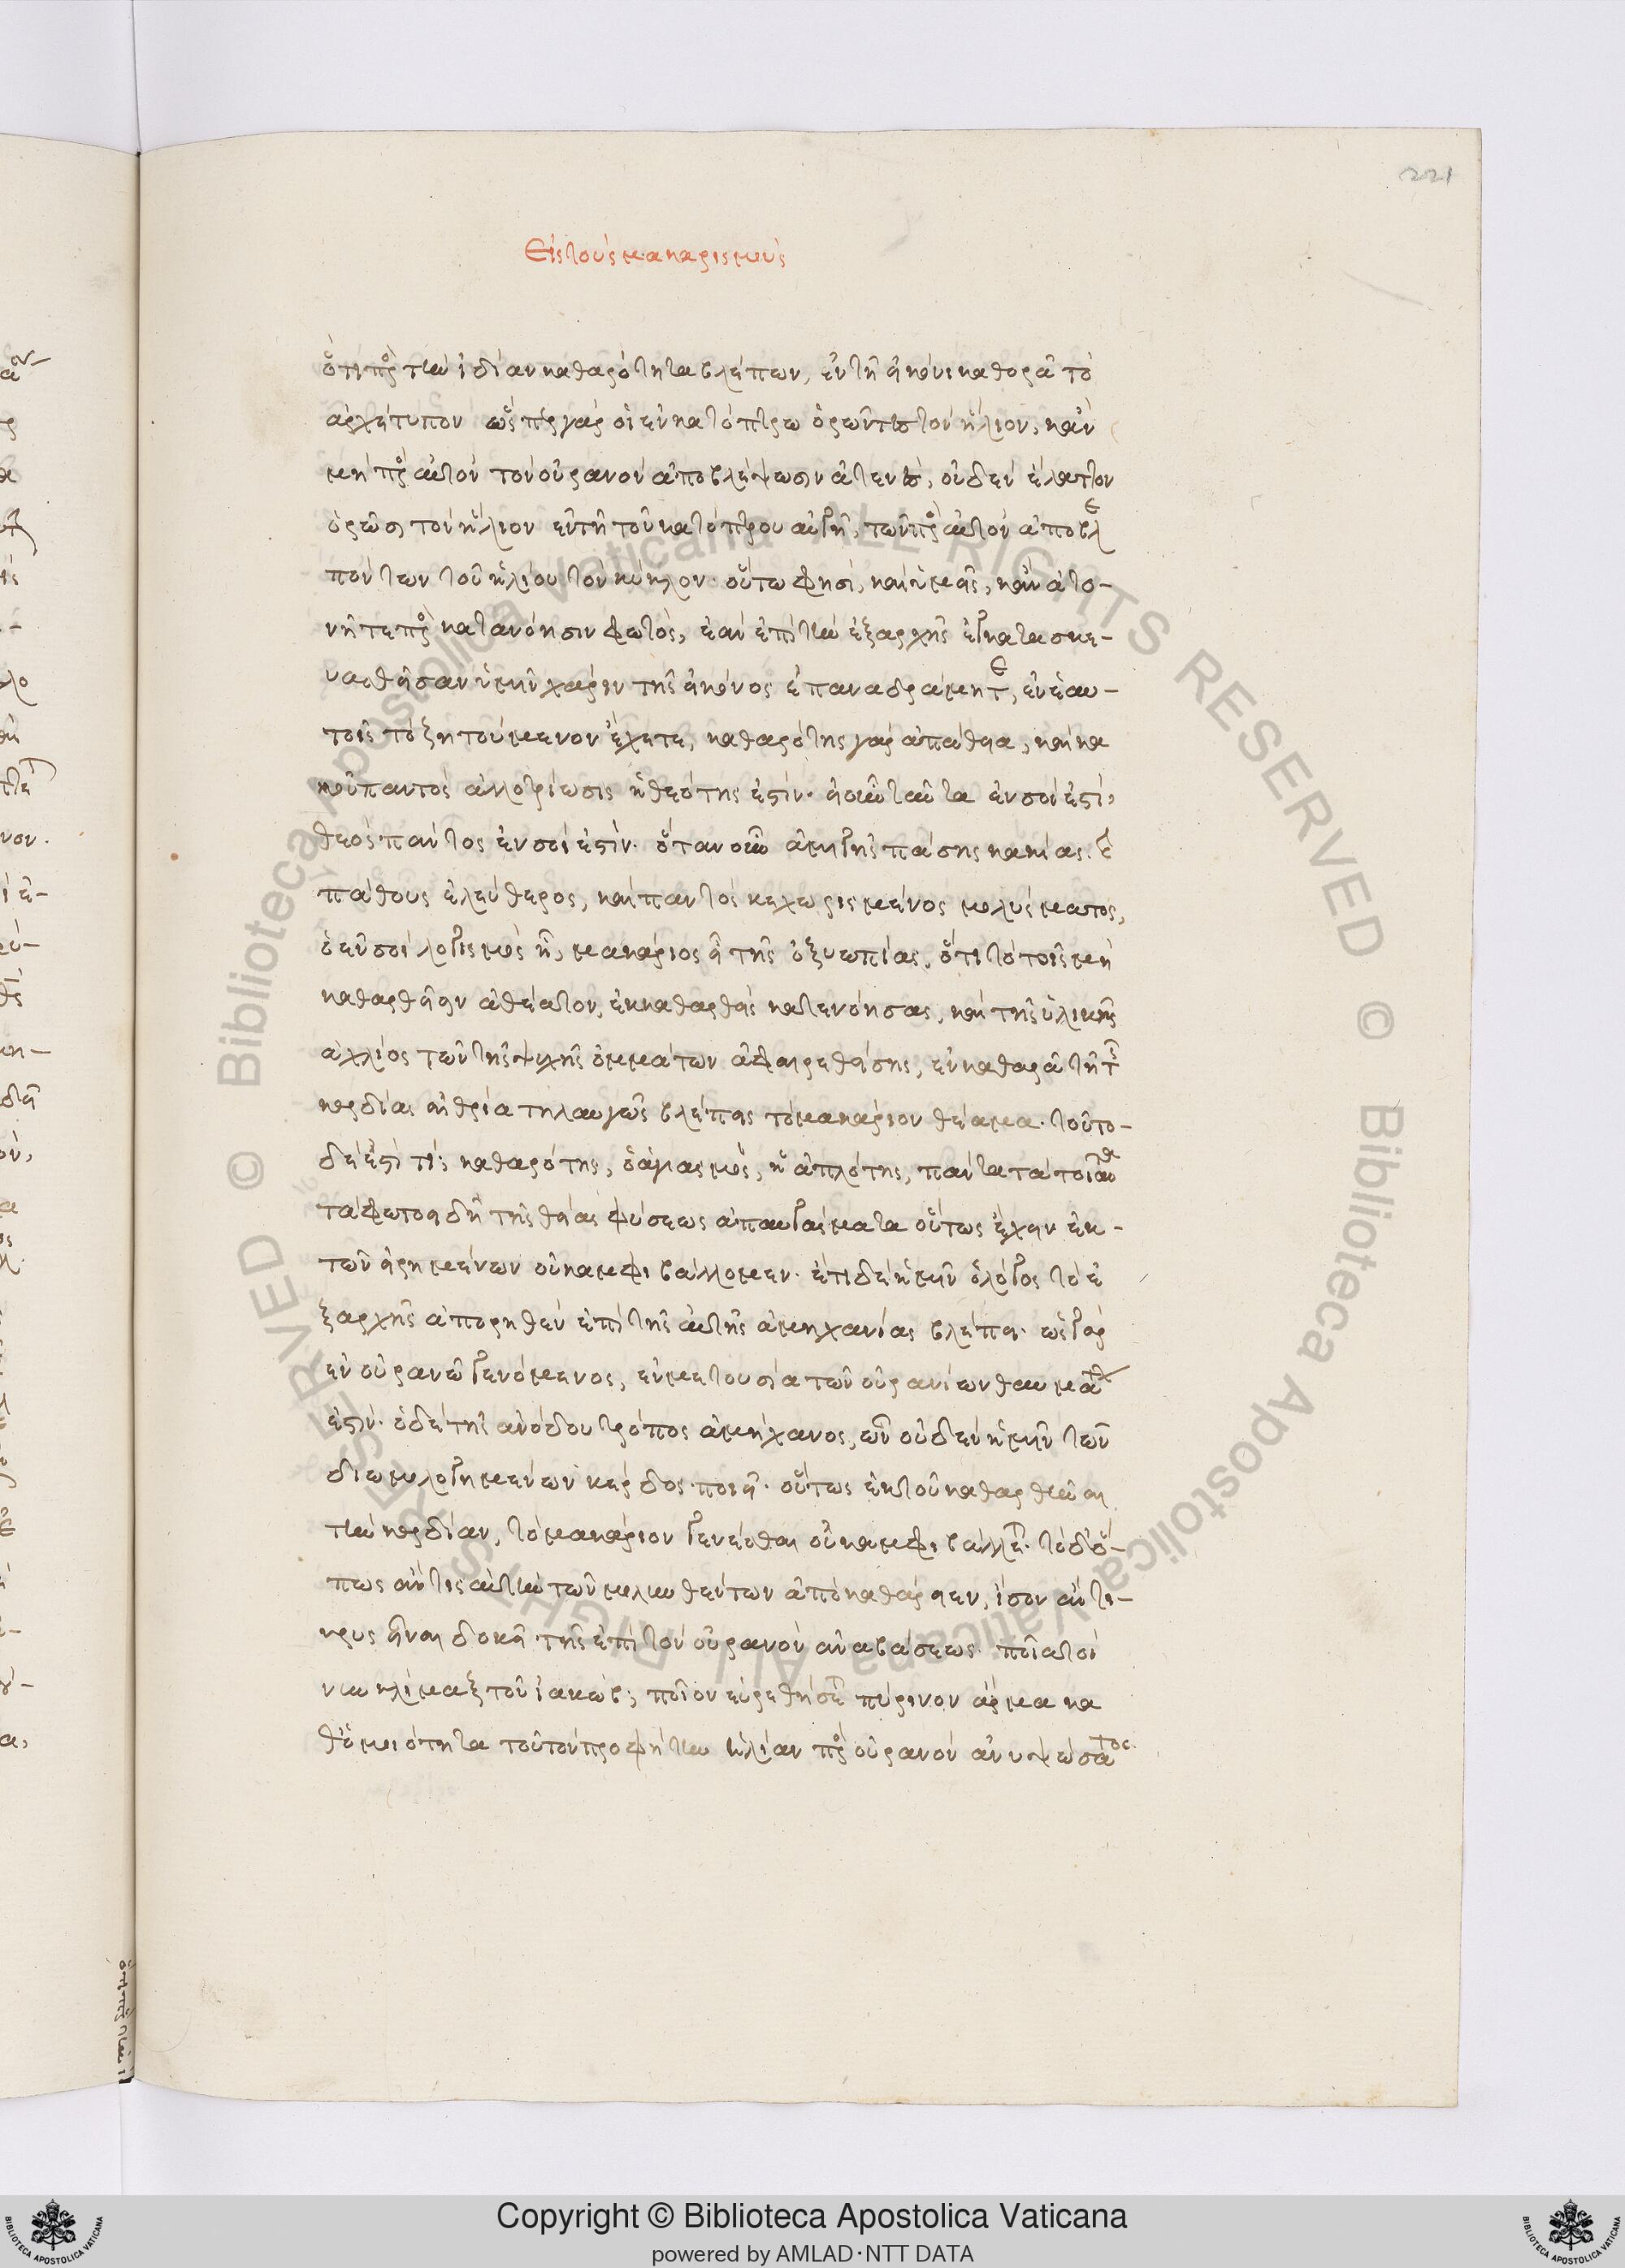 221
Εἰς τοὺς μακαρισμούς
ὅτι πρὸς τὴν ἰδίαν καθαρότητα βλέπων, ἐν τῇ εἰκόνι καθορᾷ τὸ
ἀρχέτυπον ὥσπερ γὰρ οἱ ἐν κατόπτρω ὁρῶντες τὸν ἥλιον, κἂν
μὴ πρὸς αὐτὸν τὸν οὐρανὸν ἀποβλέψωσιν ἀτενὲς, οὐδὲν ἔλαττον
ὁρῶσι τὸν ἥλιον ἐν τῇ τοῦ κατόπτρου αὐγῇ, τῶν πρὸς αὐτὸν ἀποβλε
πόντων τοῦ ἡλίου τὸν κύκλον· οὕτω φησὶ, καὶ ὑμεῖς, κἂν ἀτο-
νῆτε πρὸς κατανόησιν φωτὸς, ἐὰν ἐπὶ τὴν ἐξαρχῆς ἐγκατασκε-
υασθεῖσαν ὑμῖν χάριν τῆς εἰκόνος ἐπαναδράμητε, ἐν ἑαυ-
τοῖς τὸ ζητούμενον ἔχετε, καθαρότης γὰρ ἀπάθεια, καὶ κα
κοῦ παντὸς ἀλλοτρίωσις ἡ θεότης ἐστίν· εἰ οὖν ταῦτα ἐν σοί ἐστί,
θεὸς πάντος ἐν σοί ἐστίν· ὅταν οὖν ἀμιγὴς πάσης κακίας. καὶ
πάθους ἐλεύθερος, καὶ παντὸς κεχωρισμένος μολύσματος,
ὁ ἐν σοὶ λογισμὸς ᾖ, μακάριος εἶ τῆς ὀξυωπίας, ὅτι τὸ τοῖς μὴ
καθαρθεῖσιν ἀθέατον, ἐκκαθαρθεὶς κατενόησας, καὶ τῆς ὑλικῆς
ἀχλύος τῶν τῆς ψυχῆς ὀμμάτων ἀφαιρεθείσης, ἐν καθαρᾷ τῇ τῆς
καρδίας αἰθρία τηλαυγῶς βλέπεις τὸ μακάριον θέαμα· τοῦτο-
δέ ἐστὶ τί; καθαρότης, ὁ ἁγιασμὸς, ἡ ἁπλότης, πάντα τὰ τοιαῦτα
τὰ φωτοειδῆ τῆς θείας φύσεως ἀπαυγάσματα οὕτως ἔχειν ἐκ-
τῶν εἰρημένων οὐκ ἀμφιβάλλομεν· ἔτι δὲ ἡμῖν ὁ λόγος τὸ ἐ
ξαρχῆς ἀπορηθὲν ἐπὶ τῆς αὐτῆς ἀμηχανίας βλέπει· ὡς γὰρ
ἐν οὐρανῷ γενόμενος, ἐν μετουσία τῶν οὐρανίων θαυμάτων
ἐστίν· ὁ δὲ τῆς ἀνόδου τρόπος ἀμήχανος, ὢν οὐδὲν ἡμῖν τῶν
διωμολογημένων κέρδος ποιεῖ· οὕτως ἐκ τοῦ καθαρθῆναι
τὴν καρδίαν, τὸ μακάριον γενέσθαι οὐκ ἀμφιβάλλεται· τὸ δ' ὅ-
πως ἄν τις αὐτὴν τῶν μολυνθέντων ἀποκαθάρειεν, ἴσον ἄντι-
κρυς εἶναι δοκεῖ τῆς ἐπὶ τὸν οὐρανὸν ἀναβάσεως· ποία τοί
νυν κλίμαξ τοῦ ἰακώβ; ποῖον εὑρεθήσεται πύρινον ἅρμα κα
θ' ὁμοιότητα τοῦ τὸν προφήτην ἠλίαν πρὸς οὐρανὸν ἀνυψώσαντος·